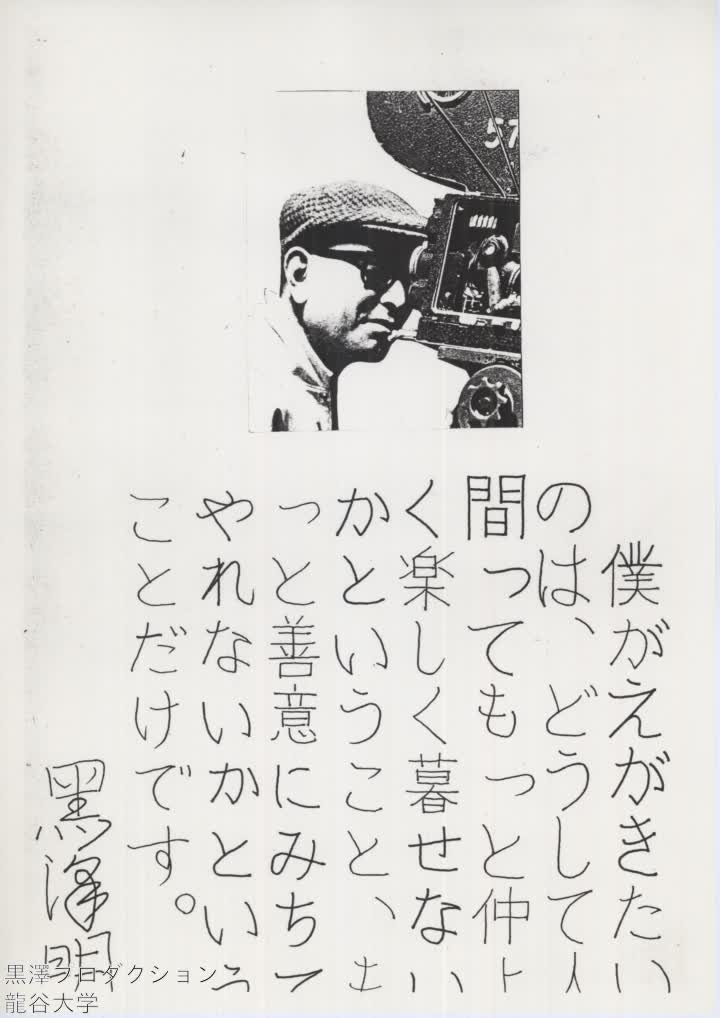 57
僕がえがきたい
のは、どうして人
間ってもっと仲よ
く楽しく暮せない
かということ、も
っと善意にみちて
やれないかという
ことだけです。
黒澤明
黒澤プロダクション
龍谷大学